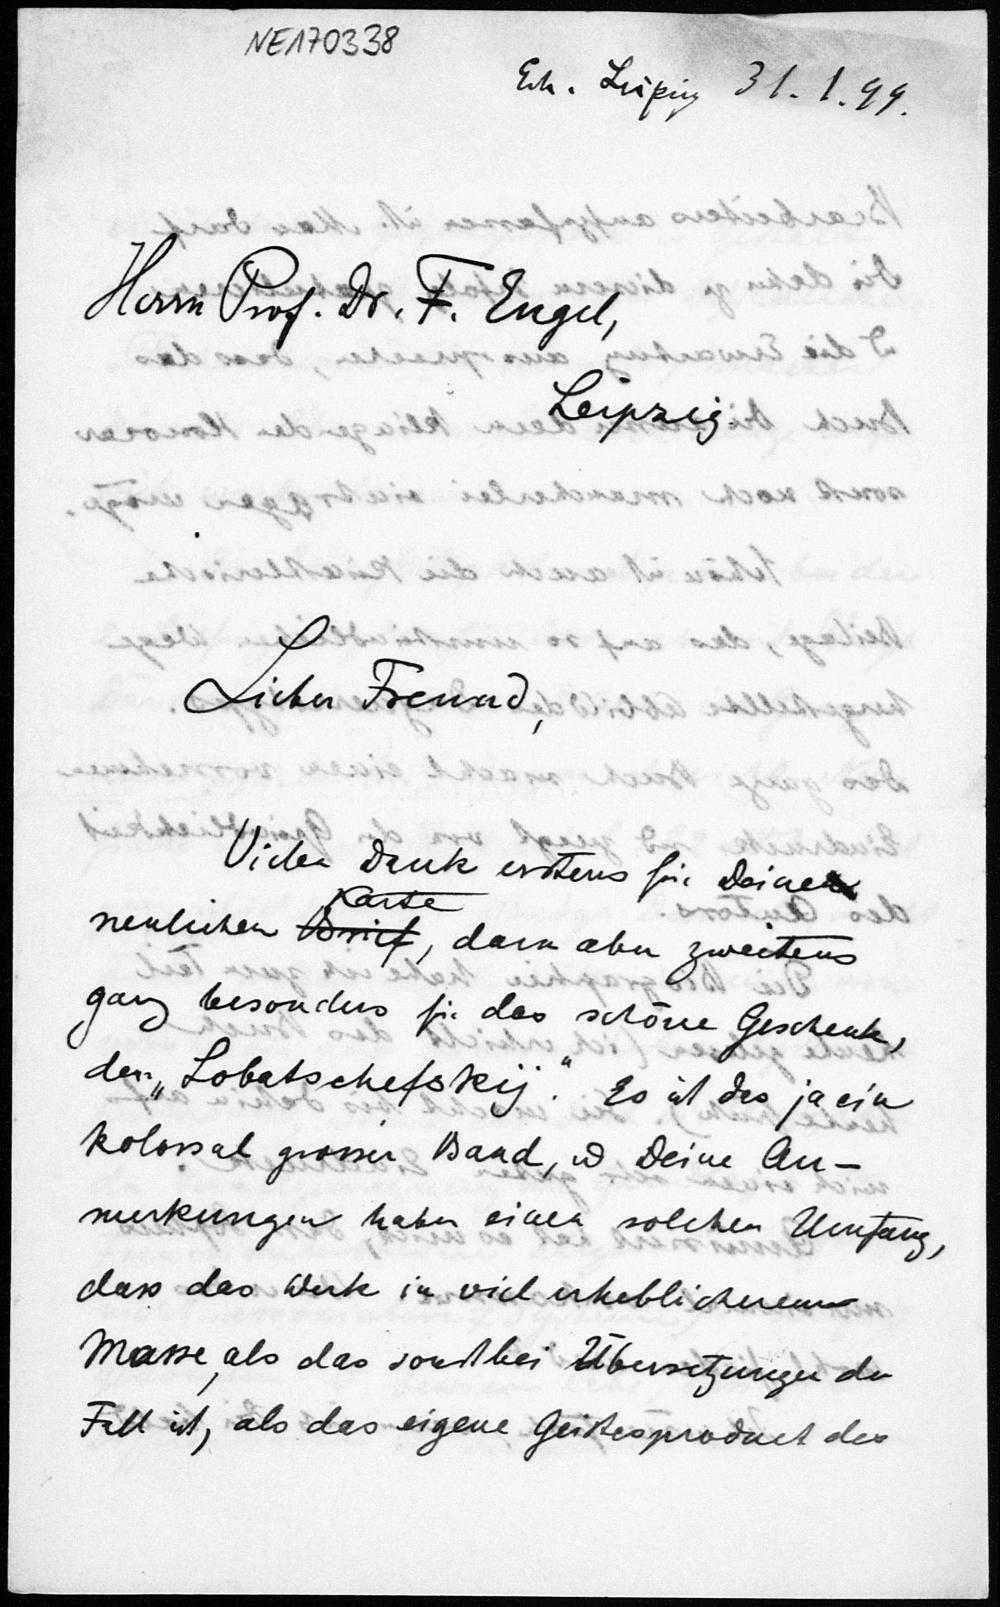 NE170338
Erh. Leipzig 31.1.99.
Herrn Prof. Dr. F. Engel,
Leipzig.
Lieber Freund,
Vielen Dank erstens für Deine
Karte
neulichen Brief, dann aber zweitens
ganz besonders für das schöne Geschenk,
den „Lobatschefskij". Es ist das ja ein
kolossal grosser Band, u Deine An-
merkungen haben einen solchen Umfang,
dass das Werk in viel erheblicherem
Masse, als das sonst bei Übersetzungen der
Fall ist, als das eigene Geistesproduct des